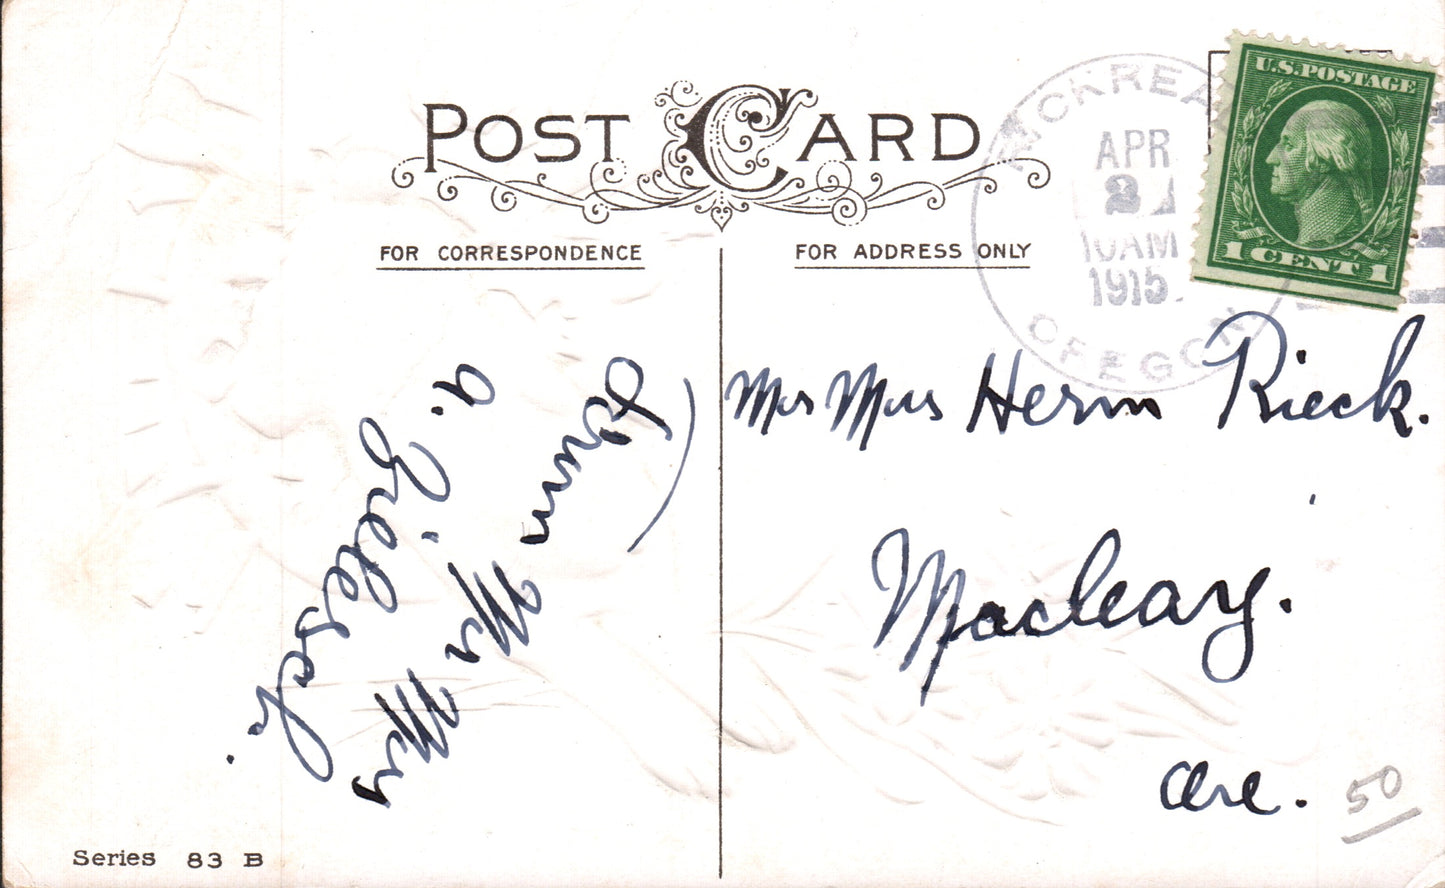 POST CARD
FOR CORRESPONDENCE
FOR ADDRESS ONLY
RICKREA
APR
2
10AM
1915
OREGON
U.S. POSTAGE
1 CENT 1
Mrs Herm Rieck.
Macleay.
Ore.
From Mr Mrs
A. Zielesch.
50
Series 83 B